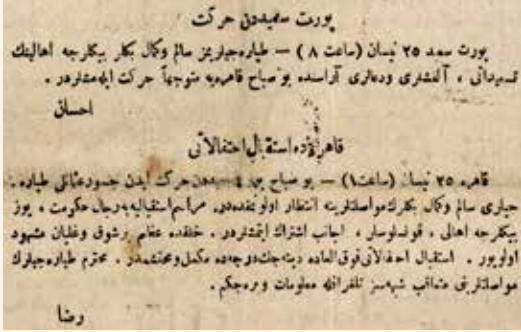 پورت سعیددن حركت
پورت سعید ۲۵ نیسان (ساعت ۸) — طیاره‌جیلریمز سالم وكمال بكلر بیكلرجه اهالینك
تشییعاتی ، آلقشلری ودعالری آراسنده بو صباح قاهره‌یه متوجهاً حركت ایتمشلردر .
احسان
قاهره‌ده استقبال احتفالاتی
قاهره ۲۵ نیسان (ساعت ۱) — بو صباح پورت سعیددن حركت ایدن جسور عثمانلی طیاره
جیلری سالم وكمال بكلرك مواصلتلرینه انتظار اولونمقده‌در. مراسم استقبالیه‌یه رجال حكومت ، یوز
بیكلرجه اهالی ، قونسلوسلر ، اجانب اشتراك ایتمشلردر . خلقده عظیم بر شوق وغلیان مشهود
اولویور . استقبال احتفالاتی فوق العاده دینه‌جك درجه‌ده مكمل ومحتشمدر . محترم طیاره‌جیلرك
مواصلتلرینی متعاقب شبهه‌سز تلغرافله معلومات ویره‌جكم .
رضا